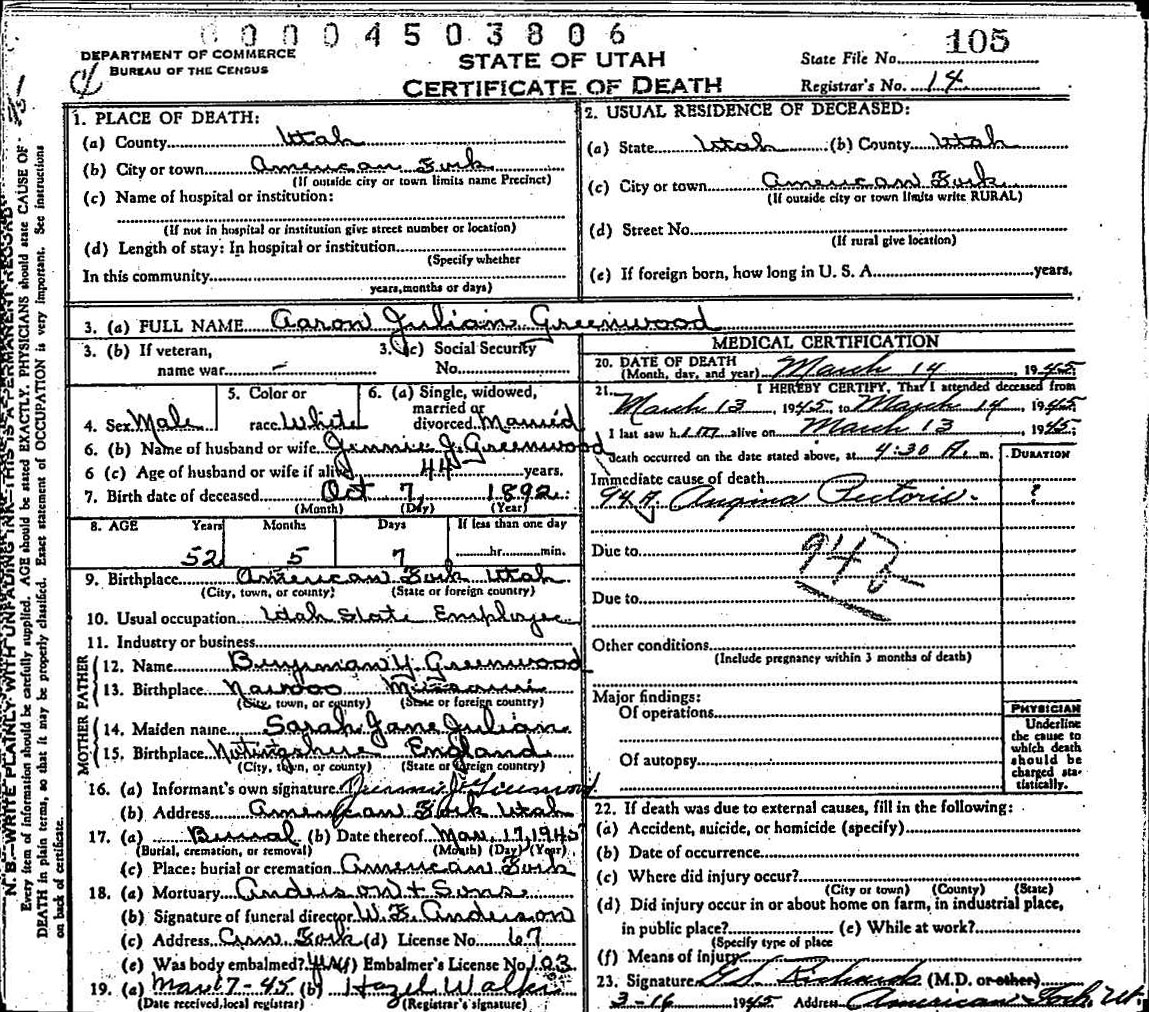 0 0 0 0 4 5 0 3 8 0 6
DEPARTMENT OF COMMERCE
BUREAU OF THE CENSUS
STATE OF UTAH
CERTIFICATE OF DEATH
State File No. 105
Registrar's No. 14
N. B.—WRITE PLAINLY WITH UNFADING INK—THIS IS A PERMANENT RECORD
Every item of information should be carefully supplied. AGE should be stated EXACTLY. PHYSICIANS should state CAUSE OF
DEATH in plain terms, so that it may be properly classified. Exact statement of OCCUPATION is very important. See instructions
on back of certificate.
1. PLACE OF DEATH:
(a) County Utah
(b) City or town American Fork
(If outside city or town limits name Precinct)
(c) Name of hospital or institution:
(If not in hospital or institution give street number or location)
(d) Length of stay: In hospital or institution
(Specify whether
In this community
years, months or days)
2. USUAL RESIDENCE OF DECEASED:
(a) State Utah (b) County Utah
(c) City or town American Fork
(If outside city or town limits write RURAL)
(d) Street No.
(If rural give location)
(e) If foreign born, how long in U. S. A. years.
3. (a) FULL NAME Aaron Julian Greenwood
3. (b) If veteran,
name war –
3. (c) Social Security
No.
4. Sex Male
5. Color or
race White
6. (a) Single, widowed,
married or
divorced Married
6. (b) Name of husband or wife Jennie J. Greenwood
6 (c) Age of husband or wife if alive 44 years.
7. Birth date of deceased Oct 7, 1892
(Month) (Day) (Year)
8. AGE Years Months Days If less than one day
52 5 7 hr. min.
9. Birthplace American Fork Utah
(City, town, or county) (State or foreign country)
10. Usual occupation Utah State Employee
11. Industry or business
FATHER
12. Name Benjiman Y. Greenwood
13. Birthplace Nauvoo Missouri
(City, town, or county) (State or foreign country)
MOTHER
14. Maiden name Sarah Jane Julian
15. Birthplace Nutingshire England
(City, town, or county) (State or foreign country)
16. (a) Informant's own signature Jennie J. Greenwood
(b) Address American Fork Utah
17. (a) Burial (b) Date thereof Mar. 17, 1945
(Burial, cremation, or removal) (Month) (Day) (Year)
(c) Place: burial or cremation American Fork
18. (a) Mortuary Anderson & Sons
(b) Signature of funeral director W. E. Anderson
(c) Address Am Fork (d) License No. 67
(e) Was body embalmed? yes (f) Embalmer's License No. 103
19. (a) Mar 17-45 (b) Hazel Walker
(Date received local registrar) (Registrar's signature)
MEDICAL CERTIFICATION
20. DATE OF DEATH
(Month, day, and year) March 14 1945
21. I HEREBY CERTIFY, That I attended deceased from
March 13, 1945, to March 14, 1945
I last saw him alive on March 13, 1945;
death occurred on the date stated above, at 4:30 A. m.
DURATION
Immediate cause of death
94 A. Angina Pectoris. ?
942
Due to
Due to
Other conditions
(Include pregnancy within 3 months of death)
Major findings:
Of operations
Of autopsy
PHYSICIAN
Underline
the cause to
which death
should be
charged sta-
tistically.
22. If death was due to external causes, fill in the following:
(a) Accident, suicide, or homicide (specify)
(b) Date of occurrence
(c) Where did injury occur?
(City or town) (County) (State)
(d) Did injury occur in or about home on farm, in industrial place,
in public place? (e) While at work?
(Specify type of place
(f) Means of injury
23. Signature G S Richards (M.D. or other)
3-16 1945 Address American Fork, Ut.